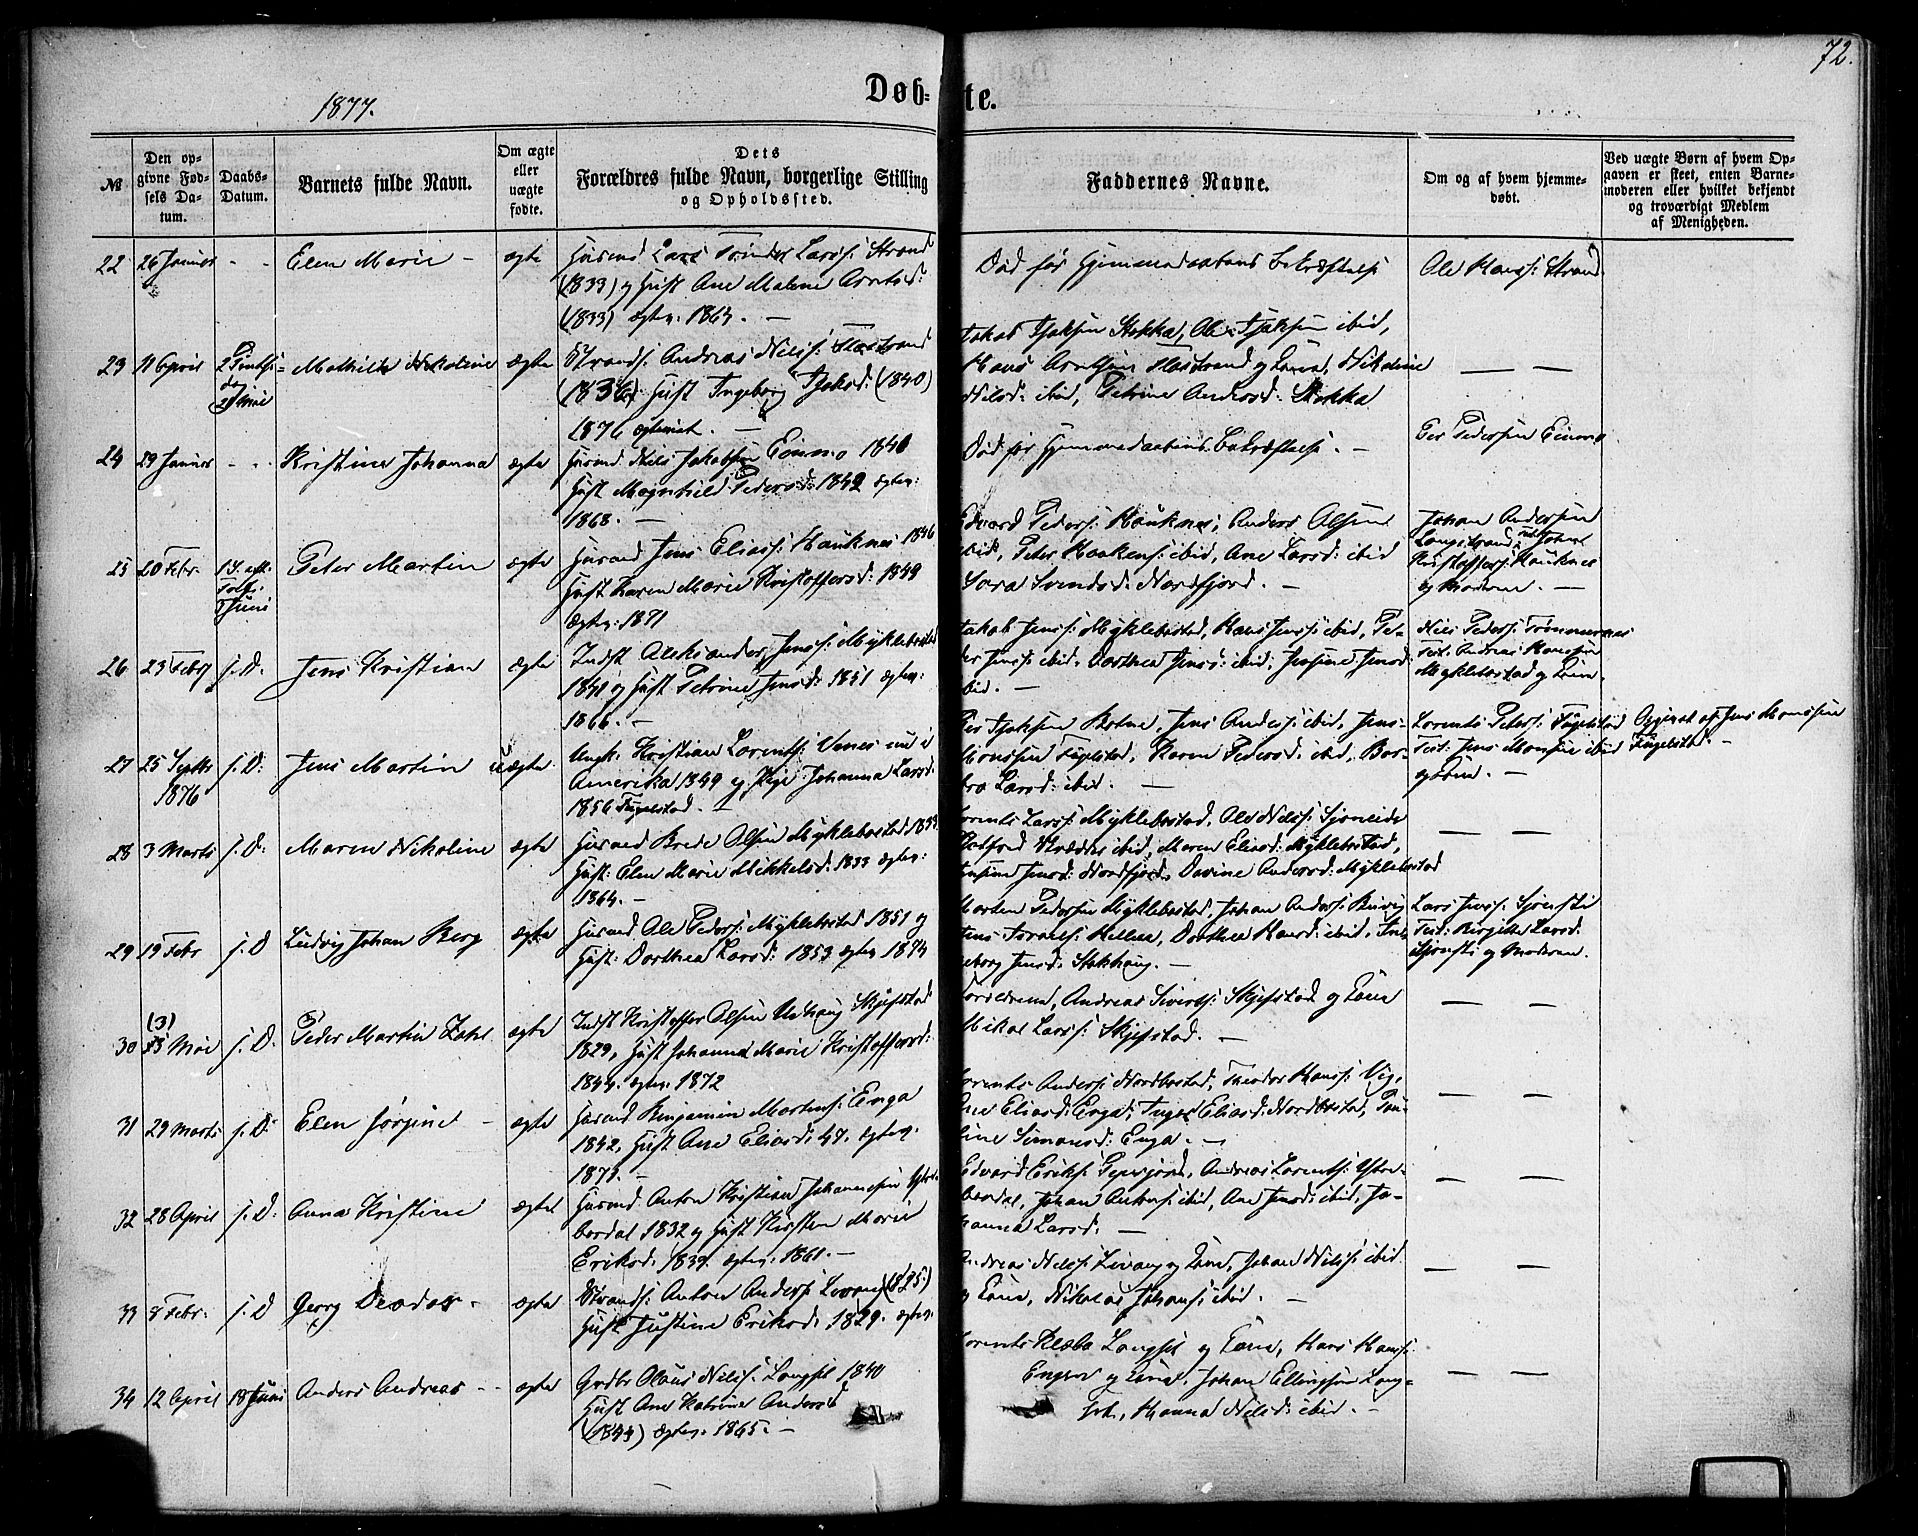 72.
1877.
Døb=
te.
№
Den op-
givne Fød-
sels Da-
tum.
Daabs-
Datum.
Barnets fulde Navn.
Om ægte
eller
uægte
fødte.
Dets
Forældres fulde Navn, borgerlige Stilling
og Opholdssted.
Faddernes Navne.
Om og af hvem hjemme-
døbt.
Ved uægte Børn af hvem Op-
gaven er skeet, enten Barne-
moderen eller hvilket bekjendt
og troværdigt Medlem
af Menigheden.
22 26 Januar - - Elen Marie - ægte
Husmd Lars Larss: Strand
(1833) og Hust Ane Malene Arntsd:
(1833) ægtev. 1864. -
Død før Hjemmedaabens Bekræftelse
Ole Hanss: Strand
23 11 April 2 Pintse-
dag
21 Mai
Mathilde Nikoline ægte
Strands: Andreas Nilss:
(1836) Hust Ingeborg (1840)
1876 -
Stokka, Ole ibid,
Hans Arntsen og Kone, Nikoline
Nilsd: ibid, Petrine Andersd: Stokka
— —
24 29 Januar - - Kristine Johanna ægte
Husmd Nils Jakobsen Einmo 1840
Hust Magnhild Pedersd: 1842 ægtev:
1868. -
Død før Hjemmedaabens Bekræftelse. -
Per Pedersen Einmo
25 20 Febr: 1 S. eft.
Juni
Peter Martin ægte
Husmd Jens Eliass: Hauknes 1846
Hust Karen Marie Kristoffersd: 1849
ægtev: 1871
Edvard Peders: Hauknes, Anders Olsen
ibid, Peter Haakens: ibid, Ane Larsd: ibid
Sara Svendsd: Nordfjord. -
Johan Andersen
Langstrand,
Kristoffers: Hauknes
og Moderen. -
26 23 Febr s. D: Jens Kristian ægte
Indst Aleksander Jenss: Myklebostad
1841 og Hust Petrine Jensd: 1851 ægtev:
1866. -
Jakob Jenss: Myklebostad, Hans Jenss: ibid, Pe-
der Jenss: ibid, Dorthea Jensd: ibid, Jensd:
ibid. -
Nils Peders: Tømmernes
Test. Andreas Hansen
Myklebostad og Kone.
27 25 Septbr
1876
s. D: Jens Martin uægte
Ungk. Kristian Lorents: Venes nu i
Amerika 1849 og Pige Johanna Larsd:
1856 Fugelstad. -
Botne, Jens Anders: ibid, Jens
Monssen Fugelstad, Karen Pedersd: ibid, Bar-
bra Larsd: ibid. -
Lorents Peders: Fugelstad
Test: Jens Monsen ibid
og Kone. -
Opgivet af Jens Monssen
Fugelstad. -
28 3 Marts s. D: Maren Nikoline ægte
Husmd Brede Olsen Myklebostad 1833
Hust: Elen Marie Mikkelsd: 1833 ægtev:
1864. -
Lorents Larss: Myklebostad, Ole Nilss:
ibid, Maren Eliasd: Myklebostad,
Jensd: Nordfjord, Davine Andersd: Myklebostad
— —
29 19 Febr s. D Ludvig Johan Berg ægte
Husmd Ole Peders: Myklebostad 1851 og
Hust: Dorthea Larsd: 1853 ægtev 1874
Morten Pedersen Myklebostad, Johan Anders:
Dorthea Hansd: ibid, Inge-
borg Jensd: Stokhaug. -
Lars Jenss: Sjonsti
Test: Birgitte Larsd:
Sjonsti og Moderen.
30 (3)
13 Mai s. D: Peder Martin Zahl ægte
Indst Kristoffer Olsen Skjefstad
1829, Hust Johanna Marie Kristoffersd:
1844. ægtev. 1872
Forældrene, Andreas Siverts: Skjefstad og Kone
Mikal Larss: Skjefstad. -
— —
31 29 Marts s. D: Elen Jørgine - ægte
Husmd Benjamin Mortens: Enga
1842, Hust Ane Eliasd: 47. ægtev.
1873. -
Lorents Anders: Nordbostad, Theodor Hanss: Vig,
Ane Eliasd: Enga, Inger Eliasd: Nordbostad, Pau-
line Simonsd: Enga. -
— —
32 28 April s. D: Anna Kristine ægte
Husmd Anton Kristian Johannesen Ytter-
bordal 1832 og Hust Kirsten Marie
Eriksd: 1839. ægtev: 1861. -
Edvard Eriks: Andreas Lorents: Ytter-
bordal, Johan Antons: ibid, Ane Jensd: ibid, Jo-
hanna Larsd: -
— —
33 8 Febr. s. D Georg - ægte
Strands: Anton Anders: (1825)
Hust Justine Eriksd: 1829. ægtev.
Andreas Nilss: og Kone, Johan Nilss: ibid
og Kone, Nikolai Johans: ibid. -
— —
34 12 April 18 Juni Anders Andreas - - ægte
Gmdbr Olaus Nilss: Langset 1840
Hust Ane Katrine Andersd
(1844) ægtev: 1865. -
Lorents Klæbo Langset og Kone, Hans Hanss:
Engen og Kone, Johan Ellingsen Lang-
set, Hanna Nilsd: ibid. -
— —